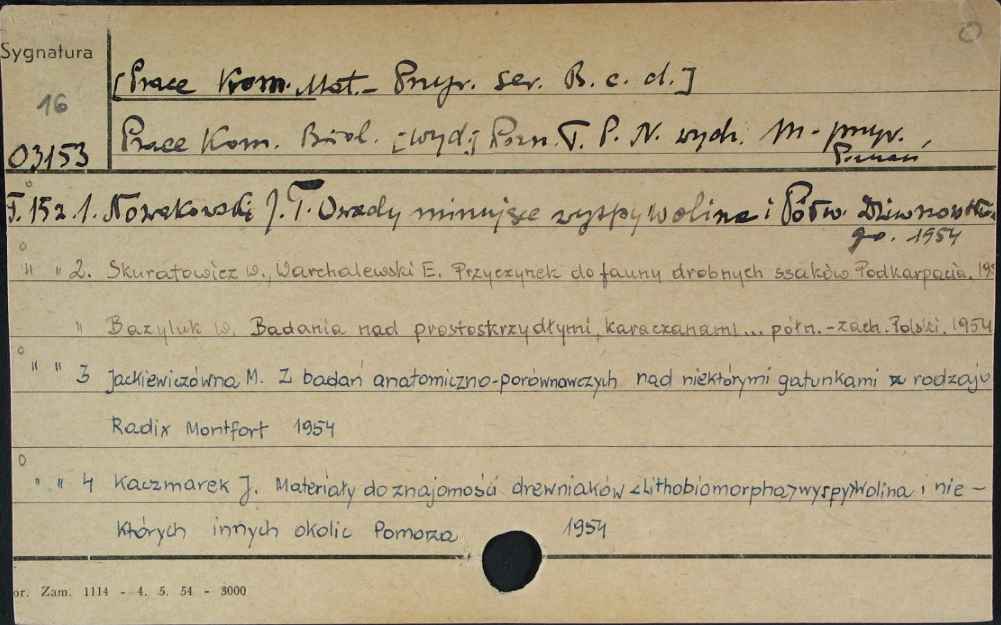 Sygnatura
16
03153
[Prace Kom. Mat.- Przyr. ser. B. c. d.]
Prace Kom. Biol. [wyd.] Pozn. T. P. N. wydz. M- przyr.
Poznań,
T. 15 z. 1. Nowakowski J. T. Owady minujące wyspy Wolina i Półw. Dziwnowskie
go. 1954
" " 2. Skuratowicz W., Warchalewski E. Przyczynek do fauny drobnych ssaków Podkarpacia, 195
" Bazyluk W. Badania nad prostoskrzydłymi, karaczanami... półn.-zach. Polski, 1954
" " 3 Jackiewiczówna M. Z badań anatomiczno-porównawczych nad niektórymi gatunkami z rodzaju
Radix Montfort 1954
" " 4 Kaczmarek J. Materiały do znajomości drewniaków <Lithobiomorpha> wyspy Wolina i nie-
których innych okolic Pomorza 1954
or. Zam. 1114 - 4. 5. 54 - 3000